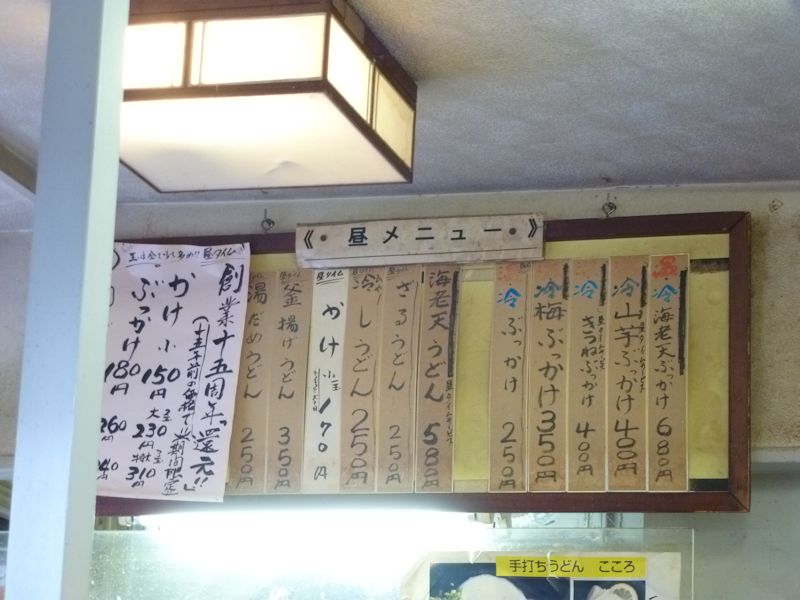 《・昼メニュー・》
温・冷 海老天ぶっかけ 680円
冷 山芋ぶっかけ 400円
冷 きつねぶっかけ 400円
冷 梅ぶっかけ 350円
温・冷 ぶっかけ 250円
海老天うどん 580円
ざるうどん 250円
冷しうどん 250円
昼タイム かけ 小 170円
釜揚げうどん 350円
湯だめうどん 250円
昼タイム
創業十五周年「還元!!」
かけ小 150円
大 230円
310円
ぶっかけ 180円
260円
手打ちうどん こころ